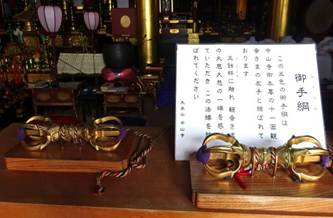 御手綱
この五色の御手綱は
中山寺御本尊の十一面観
音さまの左手と結ばれて
おります
五鈷杵に触れ 観音さま
の大慈大悲の一端を感じ
ていただき この法縁を結
ばれてください
大本山中山寺